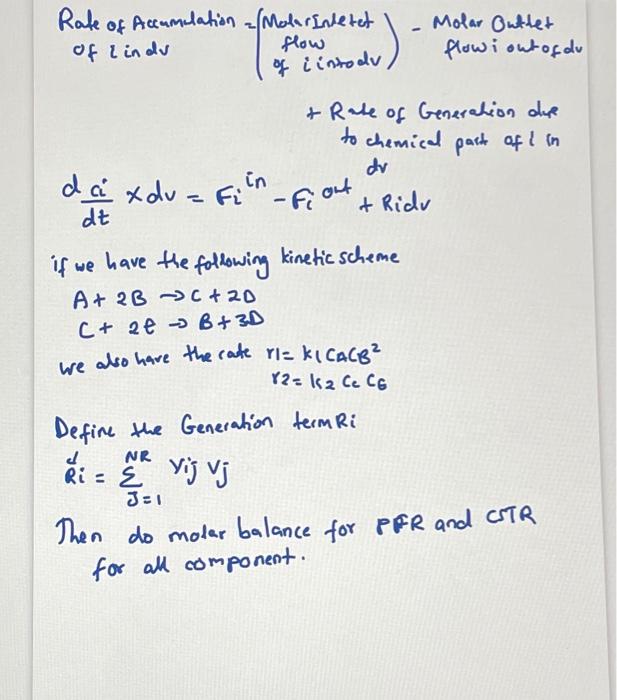 Rate of Accumulation = (Molar Inlet et - Molar Outlet
of i in dv flow flow i out of dv
of i into dv)
+ Rate of Generation due
to chemical part of i in
dv
dci/dt x dv = Fi^in - Fi^out + Ridv
if we have the following kinetic scheme
A + 2B → C + 2D
C + 2e → B + 3D
we also have the rate r1 = k1 CACB²
r2 = k2 Cc CB
Define the Generation term Ri
Ri = Σ γij Vj
NR
J=1
Then do molar balance for PFR and CSTR
for all component.